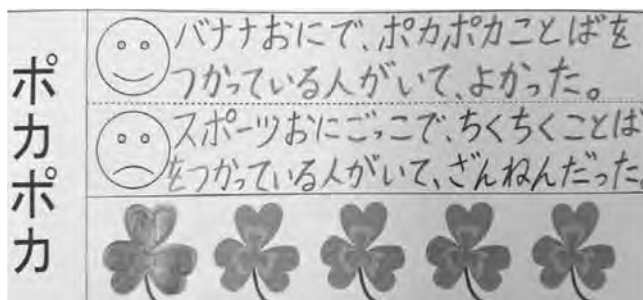 ポカポカ
バナナおにで、ポカポカことばを
つかっている人がいて、よかった。
スポーツおにごっこで、ちくちくことば
をつかっている人がいて、ざんねんだった。